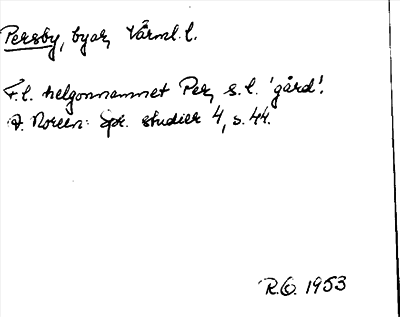 Persby, byar, Värml. l.
F.l. helgonnamnet Per, s.l. 'gård'.
A. Noreen: Spr. studier 4, s. 44.
R.O. 1953